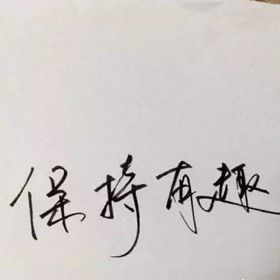 保持有趣